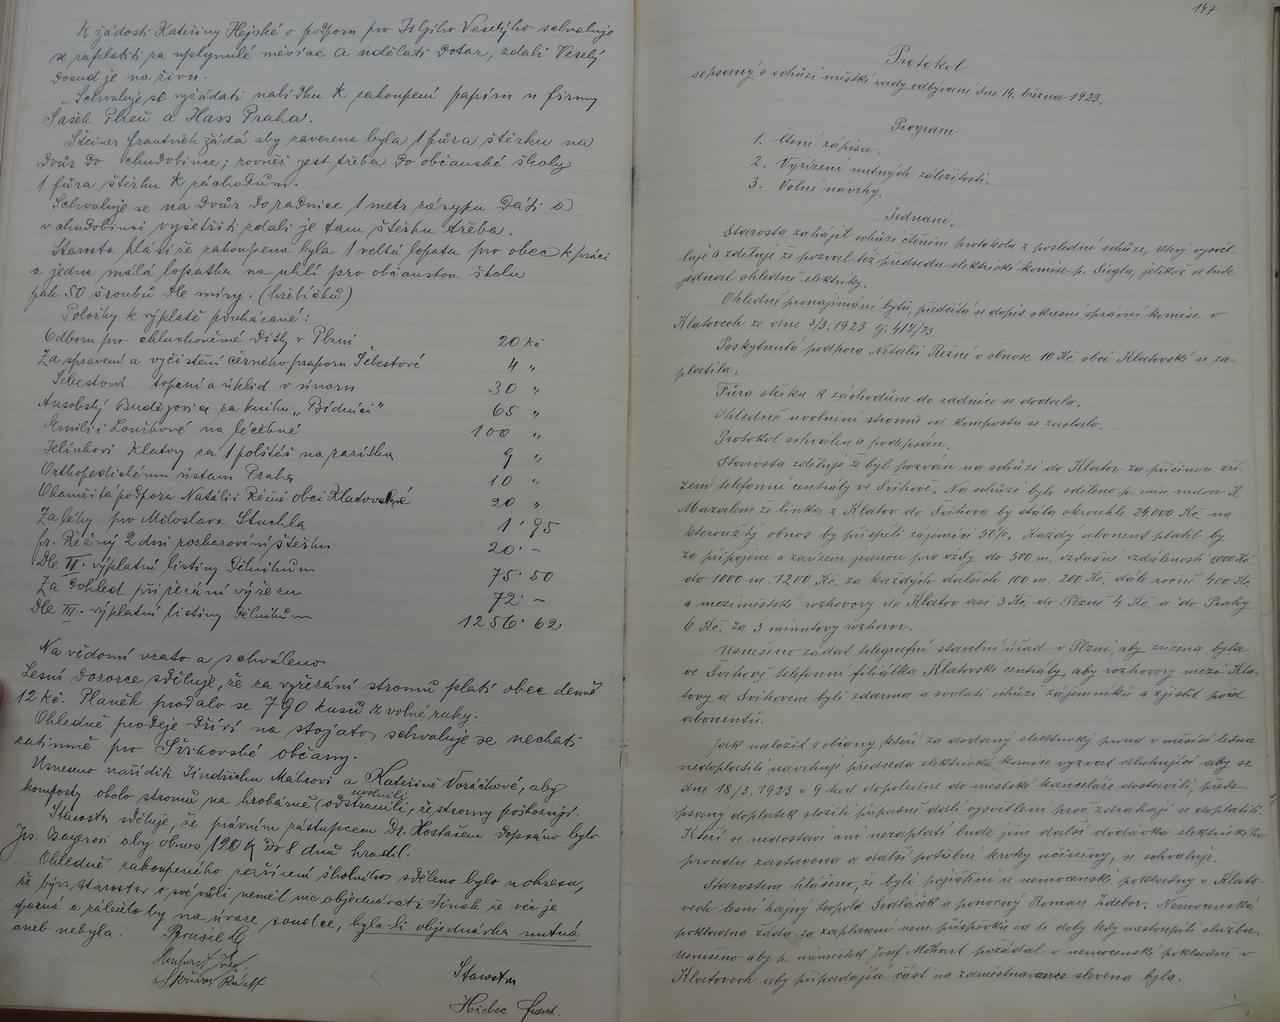 K žádosti Kateřiny Hejské o podporu pro Veselýho schvaluje
se zaplatiti za uplynulé měsíce a udělati dotaz, zdali Veselý
dosud je na živu.
Schvaluje se vyžádati nabídku k zakoupení papíru u firmy
Šašek Plzeň a Hass Praha.
Šteiner František žádá aby zavezena byla 1 fůra štěrku na
dvůr do chudobince; rovněž jest třeba do občanské školy
1 fůra štěrku k záchodům.
Schvaluje se na dvůr do radnice 1 metr rozsypu dáti a
v chudobinci vyšetřiti zdali je tam štěrku třeba.
Starosta hlásí že zakoupena byla 1 velká lopata pro obec k práci
a jedna malá lopatka na uhlí pro občanskou školu
pak 50 šroubů dle míry. (hřebíčků)
Položky k výplatě poukázané:
Odboru pro hluchoněmé dítky v Plzni 20 kč
Za spravení a vyčistění černého praporu Šebestové 4 „
Šebestovi topení a úklid v únoru 30 „
Budějovice za knihu „Bídníci" 65 „
Emilii Louškové na léčebné 100 „
Jelínkovi Klatovy za 1 polštář na razítka 9 „
Orthopedickému ústavu Praha 10 „
Okamžitá podpora Natálii Říšné obci Klatovské 20 „
Zaběhy pro Miloslava Stuchla 1·95
fr. Řezný 2 dni rozhazování štěrku 20·-
Dle II. výplatní listiny dělníkům 75·50
Za dohled při řezání výřezu 72·-
Dle III. výplatní listiny dělníkům 1256·62
Na vědomí vzato a schváleno
Lesní dozorce sděluje, že za vyřezání stromů platí obec denně
12 kč. Planěk prodalo se 790 kusů z volné ruky.
Ohledně prodeje dříví na stojato schvaluje se nechati
zatímně pro Švihovské občany.
Usneseno naříditi Jindřichu Mahsovi a Kateřině Voráčkové, aby
komposty okolo stromů na hrobárně (odstranili, uvolnili, že stromy poškozují.
Starosta sděluje, že právním zástupcem Dr. Hostašem dopsáno bylo
Jos. Bayerovi aby obnos 120 K do 8 dnů hradil.
Ohledně zakoupeného zařízení školního sděleno bylo u okresu,
že býv. starosta o své vůli neměl nic objednávati jinak že věc je
sporná a záleželo by na úvaze soudce, byla-li objednávka nutná
aneb nebyla.
Starosta
147
Protokol
sepsaný o schůzi městské rady odbývané dne 14. března 1923.
Program
1. Čtení zápisu.
2. Vyřízení nutných záležitostí.
3. Volné návrhy.
Jednání.
Starosta zahájil schůzi čtením protokolu z poslední schůze, který vysvět-
luje a zděluje že pozval též předsedu elektrické komise p. Siegla, jelikož se bude
jednat ohledně elektriky.
Ohledně pronajímání bytů, předčítá se dopis okresní správní komise v
Klatovech ze dne 3/3. 1923 čj. 417/23.
Poskytnutá podpora Natalii Říšné v obnose 10 Kč. obci Klatovské se za-
platila.
Fůra stěrku k záchodům do radnice se dodala.
Ohledně uvolnění stromů od kompostu se zaslalo.
Protokol schválen a podepsán.
Starosta zděluje že byl pozván na schůzi do Klatov za příčinou zří-
zení telefonní centrály ve Švihově. Na schůzi bylo sděleno p. min. radou K.
Mazalem že linka z Klatov do Švihova by stála okrouhle 24.000 Kč. na
kteroužto obnos by přispěli zájemníci 50%. Každý abonent platil by
za připojení a zařízení jednou pro vždy do 500 m. vzdušné vzdálenosti 1000 Kč.
do 1000 m. 1200 Kč. za každých dalších 100 m. 200 Kč. dále ročně 400 Kč.
a meziměstské rozhovory do Klatov asi 3 Kč. do Plzně 4 Kč. a do Prahy
6 Kč. za 3 minutový rozhovor.
Usneseno žádat telegrafní stavební úřad v Plzni, aby zřízena byla
ve Švihově telefonní filiálka Klatovské centrály, aby rozhovory mezi Kla-
tovy a Švihovem byli zdarma a svolati schůzi zájemníků a zjistit počet
abonentů.
Jak naložit s občany, kteří za dodaný elektrický proud v měsíci lednu
nedoplatili navrhuje předseda elektrické komise vyzvat dlužníky aby se
dne 18/3. 1923 v 9 hod dopoledne do městské kanceláře dostavili, přede-
psaný doplatek složili případně dali vysvětlení proč zdráhají se doplatiti.
Kteří se nedostaví ani nezaplatí bude jim další dodávka elektrického
proudu zastavena a další potřebné kroky učiněny, se schvaluje.
Starostem hlášeno, že byli pojištěni u nemocenské pokladny v Klato-
vech lesní hajný Leopold Sedláček a ponocný Roman Zdebor. Nemocenská
pokladna žádá za zaplacení nem. příspěvků od té doby kdy nastoupili službu.
Usneseno aby p. náměstek Josef Mőhart požádal v nemocenské pokladně v
Klatovech aby připadající část na zaměstnavance slevena byla.